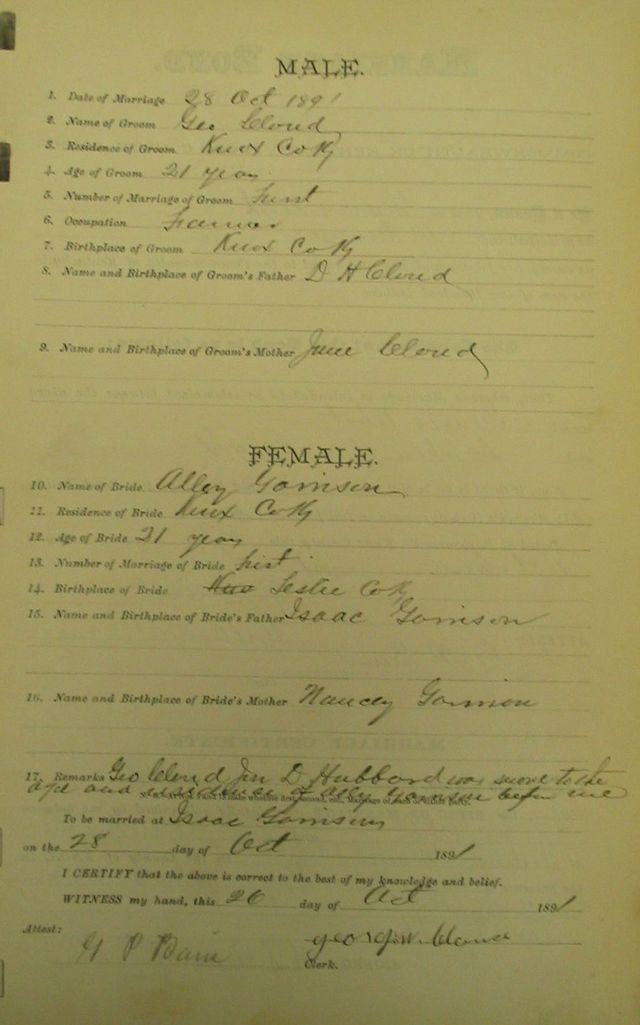 MALE.
1. Date of Marriage 28 Oct 1891
2. Name of Groom Geo Cloud
3. Residence of Groom Knox Co Ky
4. Age of Groom 21 years
5. Number of Marriage of Groom first
6. Occupation Farmer
7. Birthplace of Groom Knox Co Ky
8. Name and Birthplace of Groom's Father D H Cloud
9. Name and Birthplace of Groom's Mother Jane Cloud
FEMALE.
10. Name of Bride Alley Garrison
11. Residence of Bride Knox Co Ky
12. Age of Bride 21 years
13. Number of Marriage of Bride first
14. Birthplace of Bride Leslie Co Ky
15. Name and Birthplace of Bride's Father Isaac Garrison
16. Name and Birthplace of Bride's Mother Nancy Garrison
17. Remarks Geo Cloud D Hubbard was swore to the
age and residence of Alley Garrison before me
To be married at Isaac Garrison
on the 28 day of Oct 1891
I CERTIFY that the above is correct to the best of my knowledge and belief.
WITNESS my hand, this 26 day of Oct 1891
Attest:
G P Bain George W. Cloud
Clerk.